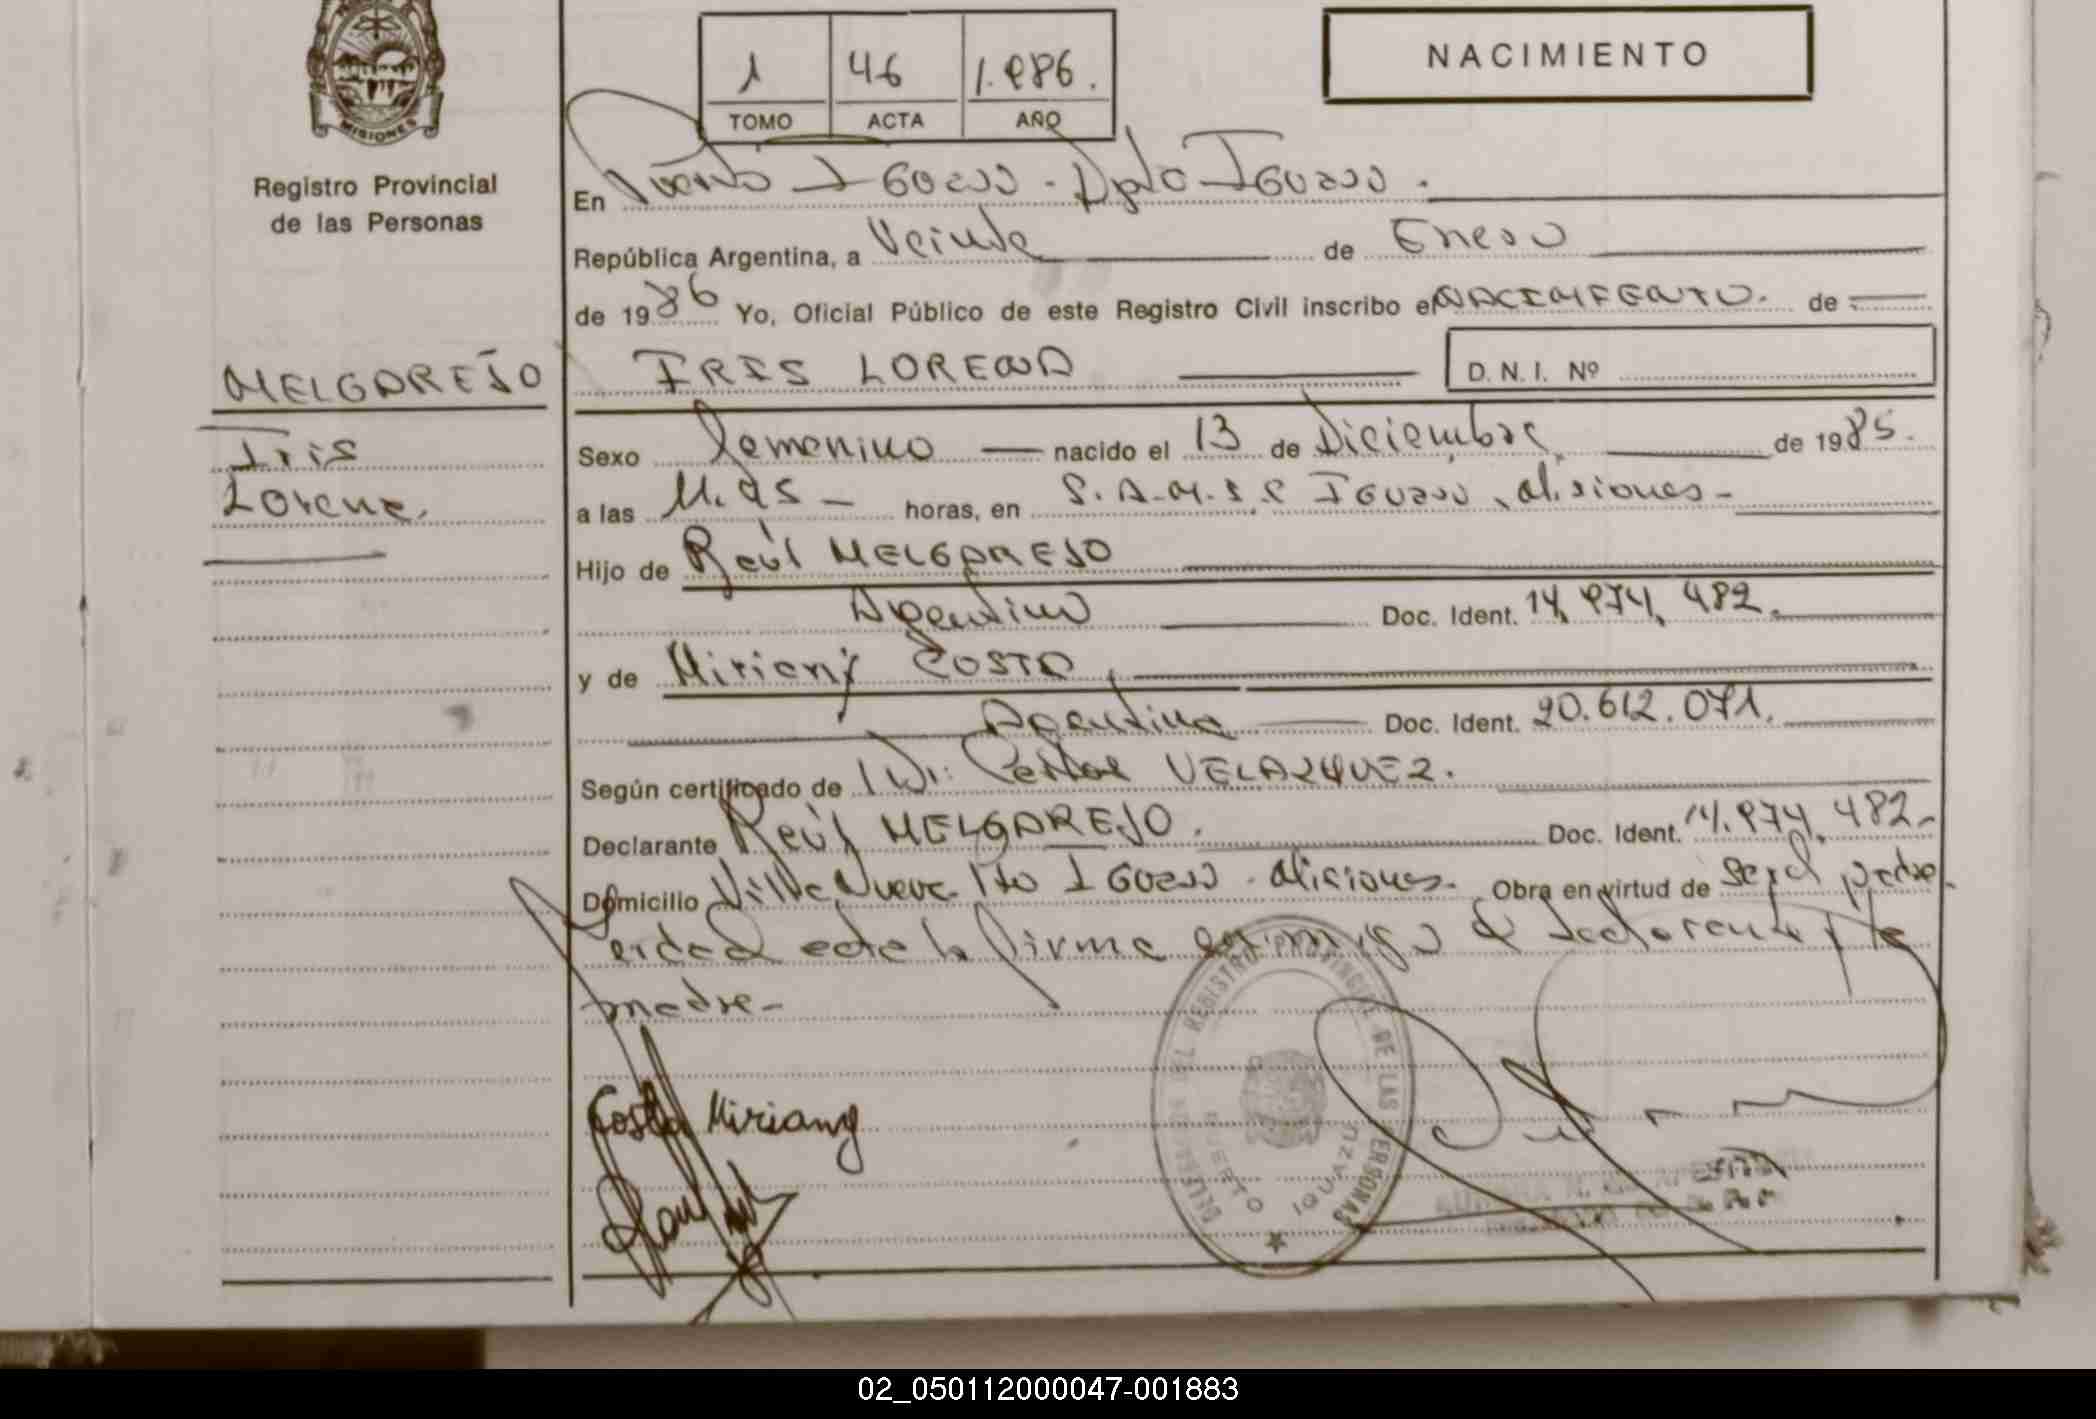 MISIONES
Registro Provincial
de las Personas
1 46 1.986.
TOMO ACTA AÑO
NACIMIENTO
En Puerto Iguazú - Dpto Iguazú.
República Argentina, a Veinte de Enero
de 1986 Yo, Oficial Público de este Registro Civil inscribo el NACIMIENTO. de
MELGAREJO
IRIS LORENA D. N. I. Nº
Iris
Lorena.
Sexo femenino nacido el 13 de Diciembre de 1985.
a las 11.45 horas, en S.A.M.I.C Iguazú, Misiones-
Hijo de Raúl MELGAREJO
Argentino Doc. Ident. 14.974.482.
y de Miriam COSTA
Argentina Doc. Ident. 20.612.071.
Según certificado de Dr: VELAZQUEZ.
Declarante Raúl MELGAREJO. Doc. Ident. 14.974.482-
Domicilio Villa Nueva. Pto Iguazú. Misiones. Obra en virtud de ser el padre.
la firma el declarante y la
madre-
Costa Miriam
DELEGACION DEL REGISTRO PROVINCIAL DE LAS PERSONAS
PUERTO IGUAZU
02_050112000047-001883